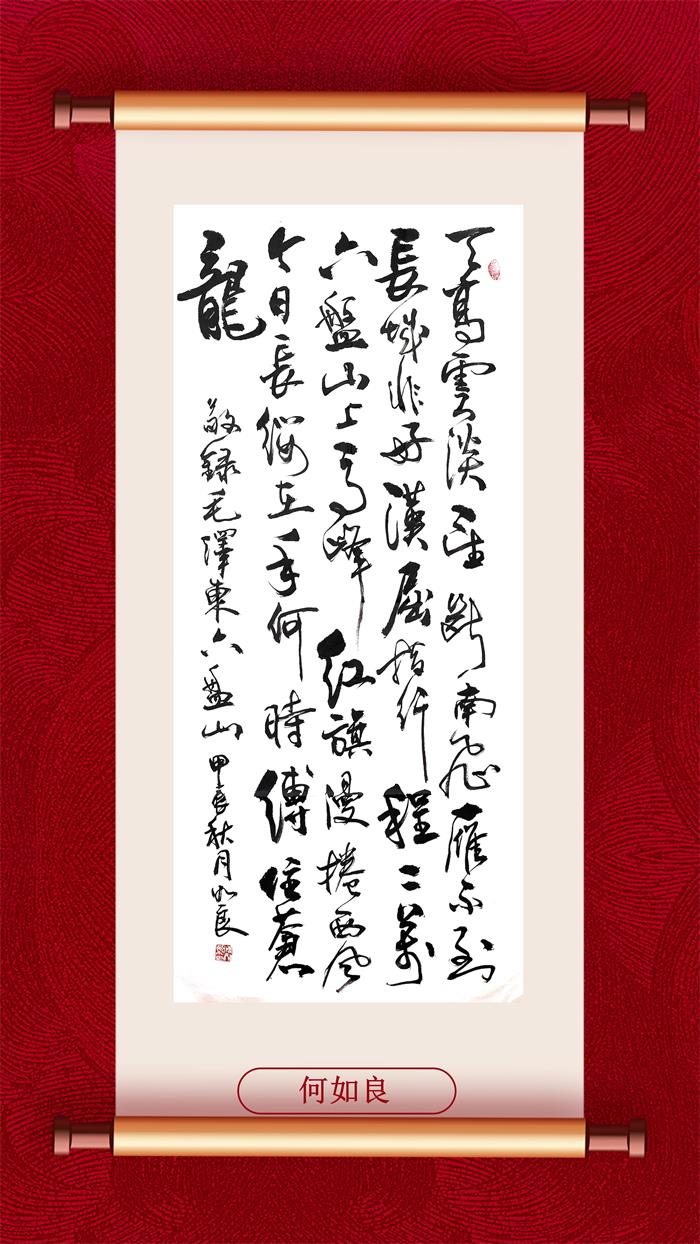 天高雲淡望斷南飛雁不到
長城非好漢屈指行程二萬
六盤山上高峰紅旗漫捲西風
今日長纓在手何時縛住蒼
龍
敬錄毛澤東六盤山甲辰秋月如良
何如良